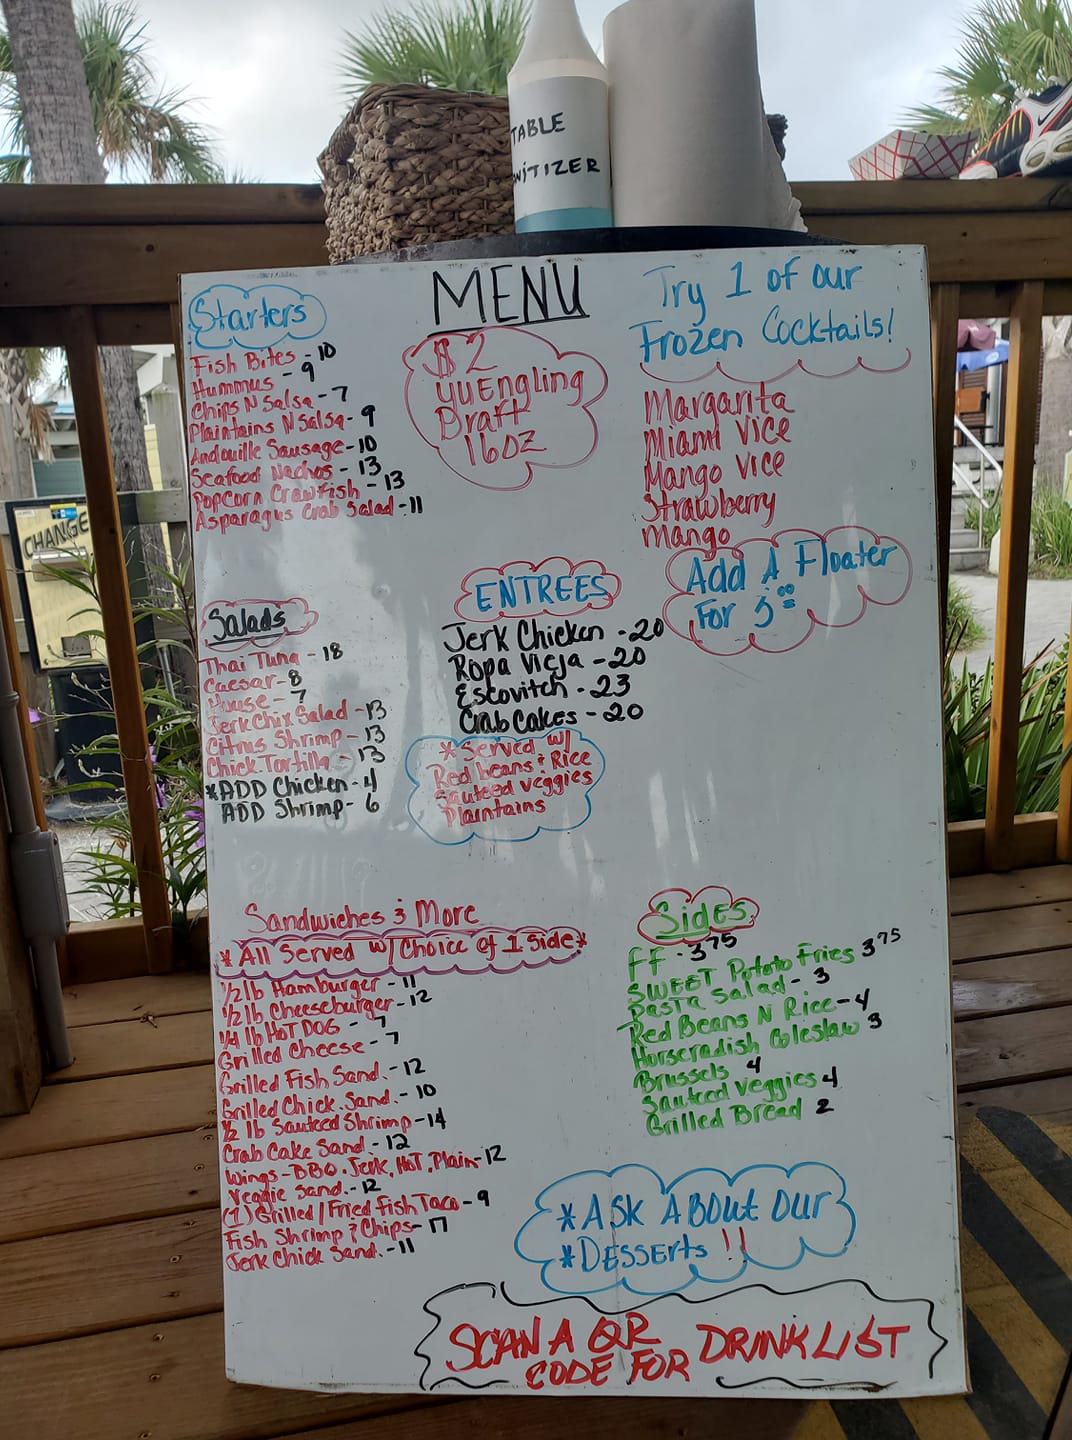 TABLE
CHANGE
MENU
Starters
Fish Bites - 10
Hummus - 9
Chips N Salsa - 7
Plaintains N Salsa - 9
Andouille Sausage - 10
Seafood Nachos - 13
Popcorn Crawfish - 13
Asparagus Crab Salad - 11
$2
Yuengling
Draft
16oz
Try 1 of our
Frozen Cocktails!
Margarita
Miami Vice
Mango Vice
Strawberry
Mango
Add A Floater
For
Salads
Thai Tuna - 18
Caesar - 8
House - 7
Jerk Chix Salad - 13
Citrus Shrimp - 13
Chick Tortilla - 13
*ADD Chicken - 4
ADD Shrimp - 6
ENTREES
Jerk Chicken - 20
Ropa Vieja - 20
Escovitch - 23
Crab Cakes - 20
*Served w/
Red beans & Rice
Sauteed veggies
Plaintains
Sandwiches & More
*All Served w/ Choice of 1 Side*
1/2 lb Hamburger - 11
1/2 lb Cheeseburger - 12
1/4 lb HOT DOG - 7
Grilled Cheese - 7
Grilled Fish Sand. - 12
Grilled Chick. Sand. - 10
1/2 lb Sauteed Shrimp - 14
Crab Cake Sand - 12
Wings - BBQ, Jerk, HOT, Plain - 12
Veggie Sand. - 12
(1) Grilled / Fried Fish Taco - 9
Fish Shrimp & Chips - 17
Jerk Chick Sand. - 11
Sides
FF - 3.75
SWEET Potato Fries 3.75
Pasta Salad - 3
Red Beans N Rice - 4
Horseradish Coleslaw 3
Brussels 4
Sauteed Veggies 4
Grilled Bread 2
*ASK ABOUT Our
*Desserts !!
SCAN A QR
CODE FOR DRINK LIST